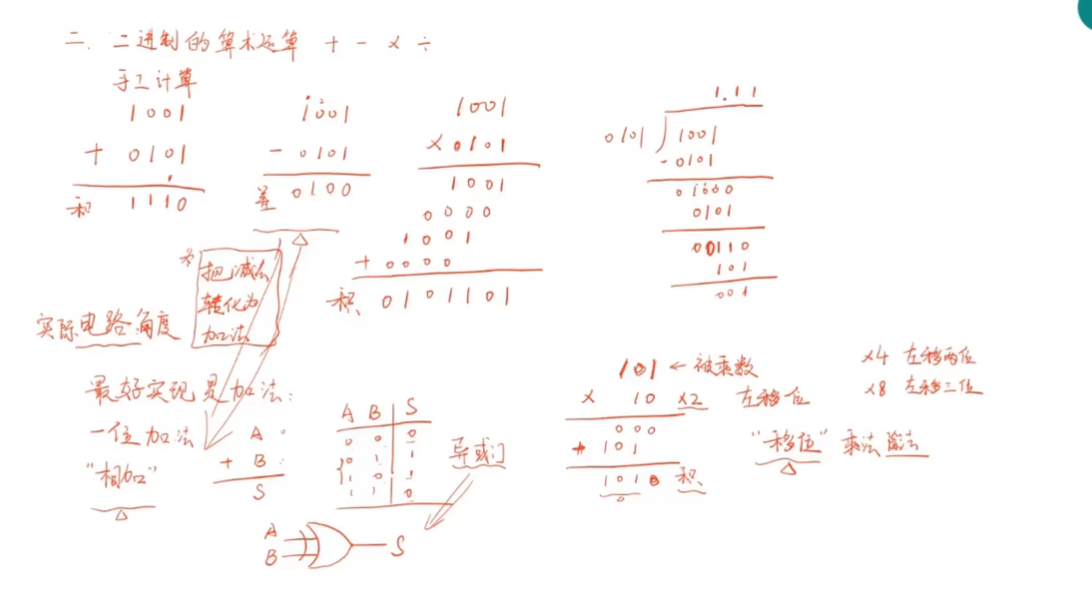 二、二进制的算术运算 + - × ÷
手工计算
1001
+ 0101
和 1110
1001
- 0101
差 0100
1001
× 0101
1001
0000
1001
+ 0000
积 0101101
1.11
0101 1001
- 0101
01000
0101
00110
101
001
把减法
转化为
加法
实际电路角度
最好实现是加法:
一位加法
"相加"
A
+ B
S
A B S
0 0 0
0 1 1
1 0 1
1 1 0
异或门
A
B
S
101 ← 被乘数
× 10 ×2 左移一位
000
+ 101
1010 积
×4 左移两位
×8 左移三位
"移位" 乘法 除法